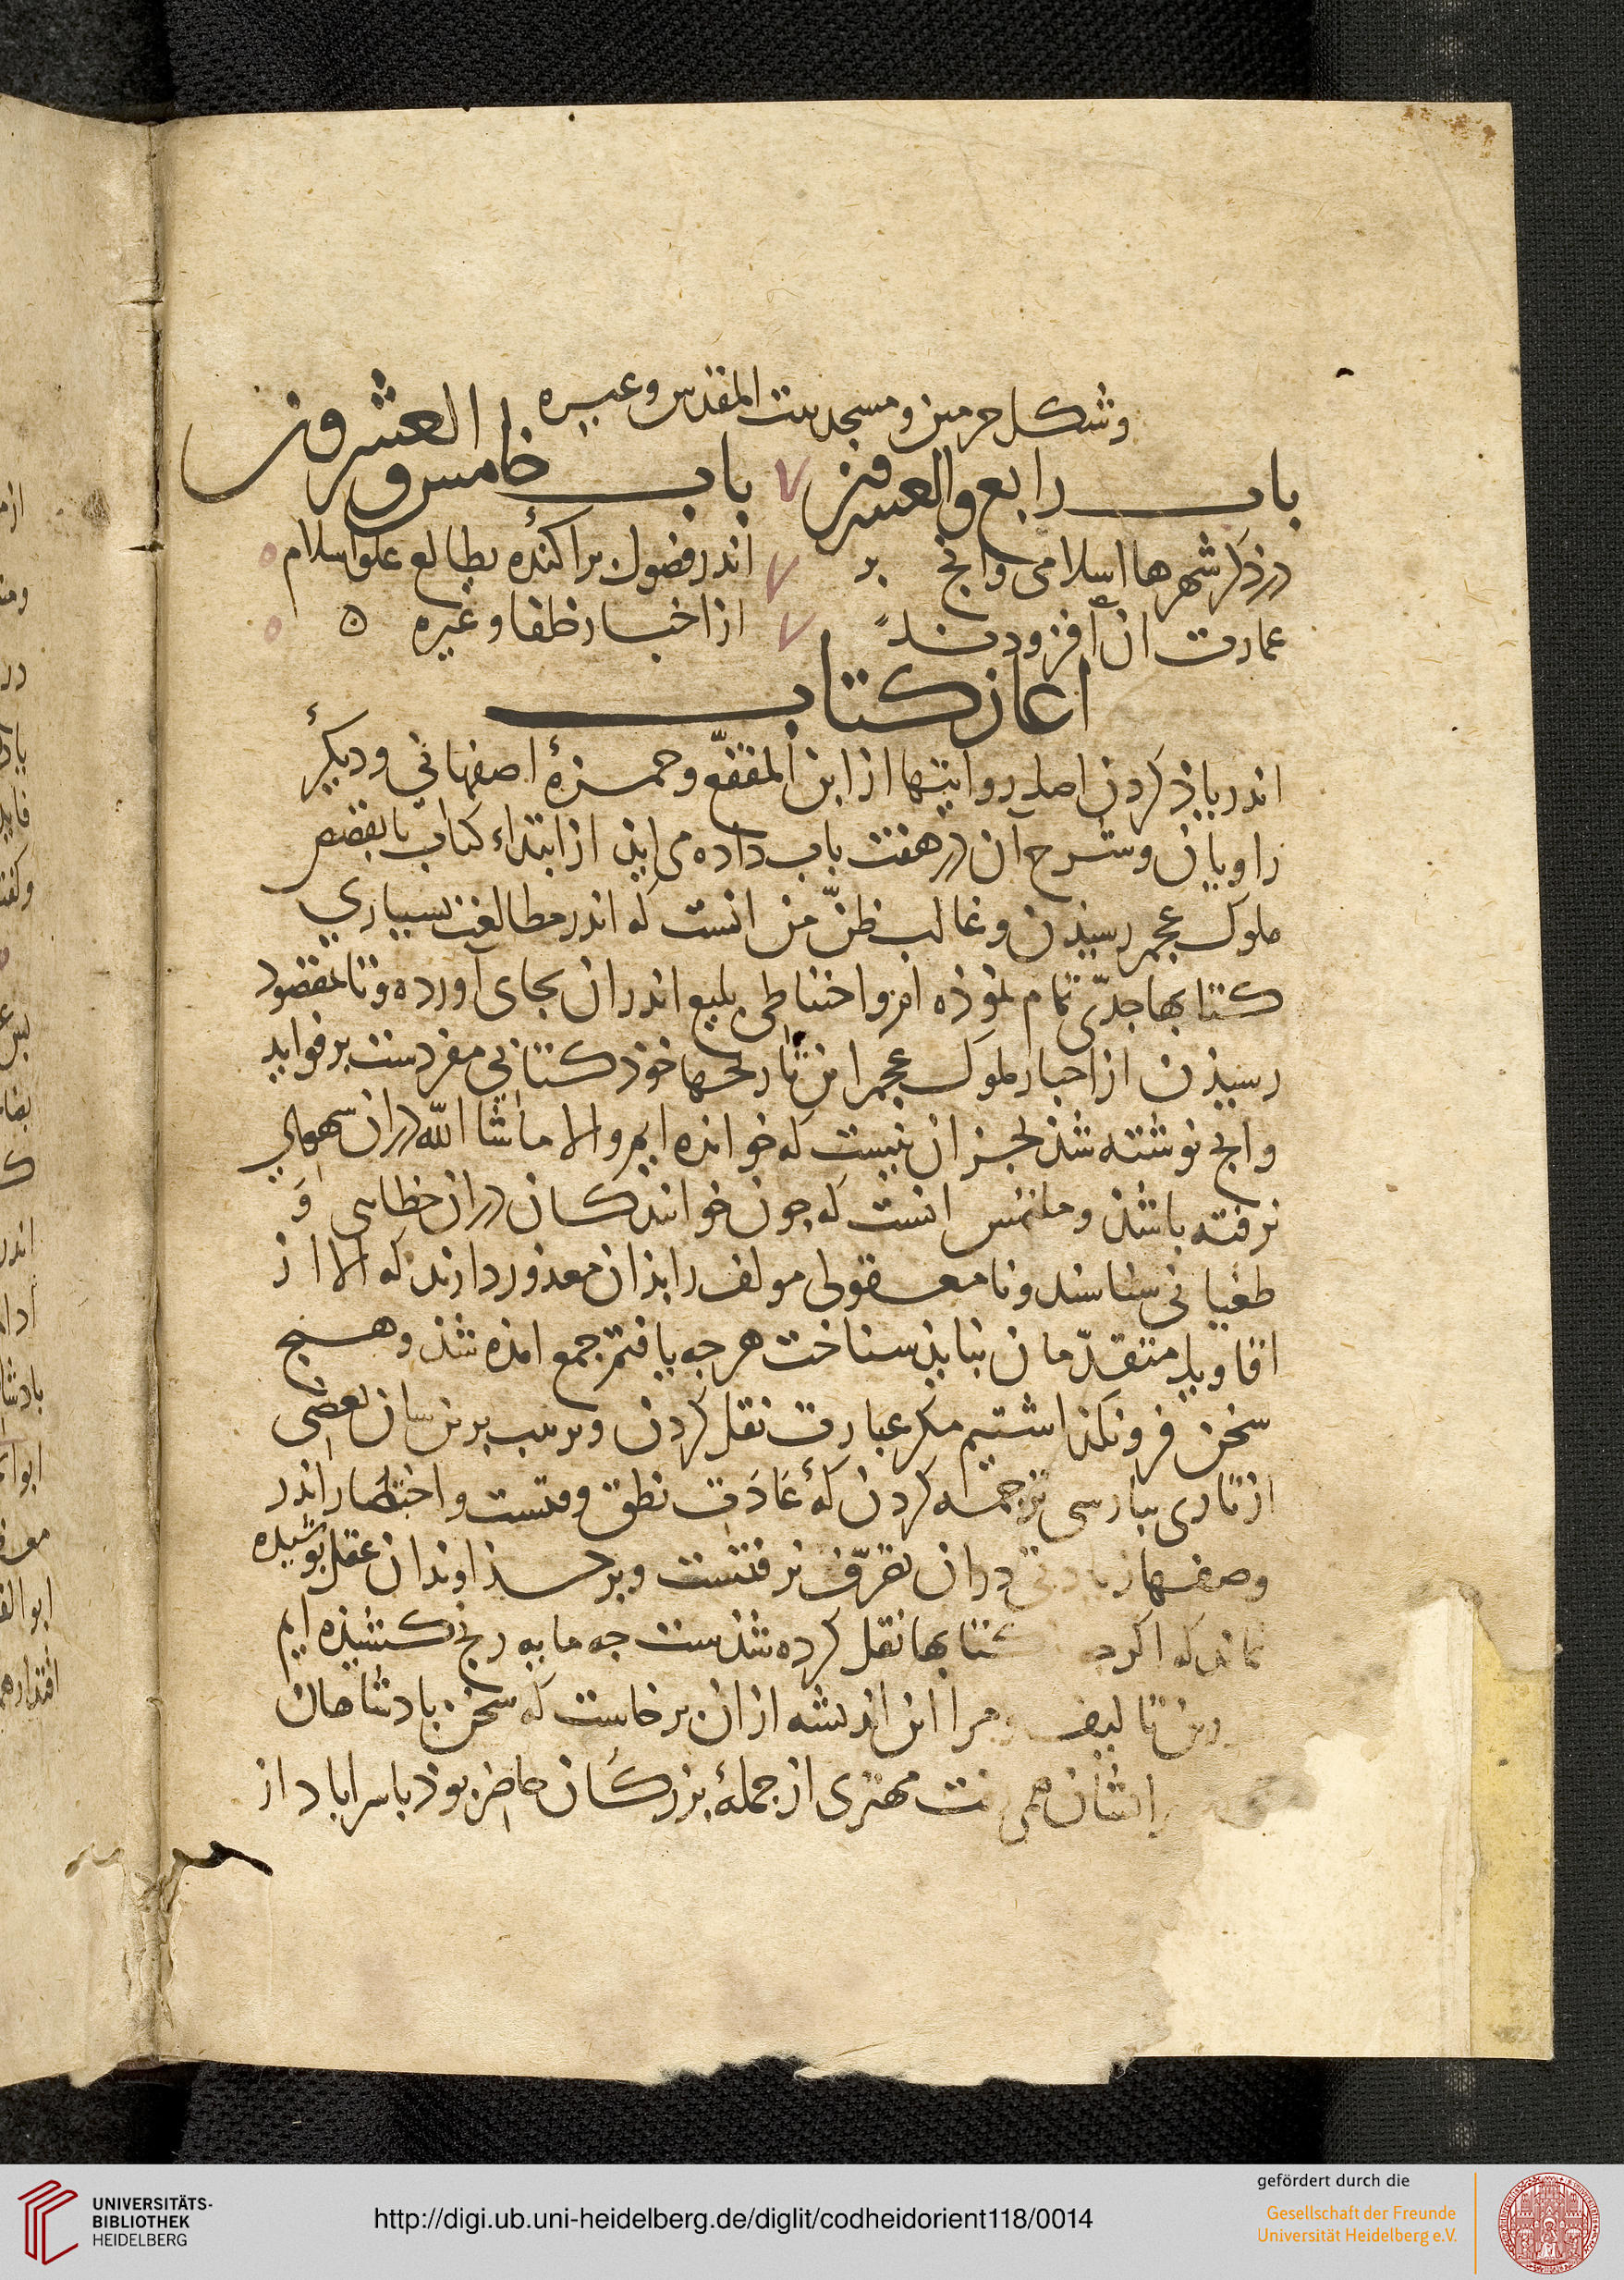 وشکل حرمین ومسجد بیت المقدس وغیره
باب رابع والعشرون
باب خامس و العشرون
درذکر شهرها اسلامی وانچ بر
عمارت ان افزودند
اندر فصول براکنده بطالع علو اسلام
از اخبار خلفا وغیره ه
اغاز کتاب
اندر یاذ کردن اصل روایتها از ابن المقفّع وحمزهٔ اصفهانی ودیکر
راویان وشرح آن در هفت باب داده می ایذ از ابتداء کتاب تا بقصص
ملوک عجم رسیذن وغالب ظنّ من انست که اندر مطالعت بسیاری
کتابها جدّی تمام نموذه ام واحتیاطی بلیغ اندر ان بجای آورده وتا بمقصود
رسیذن از اخبار ملوک عجم این تاریخها خوذ کتابی مفردست بر فواید
وانچ نوشته شذ بجز ان نیست که خوانده ایم والا ماشا الله در ان سهوی
نرفته باشذ وملتمس انست که چون خوانندکان در ان خطایی وَ
طغیانی شناسند ونامعقولی مولف را بذان معذور دارند که الا از
اقاویل متقدّمان نبایذ شناخت هرچه یافتم جمع امذه شذ وهیچ
سخن فرونکذاشتیم مکر عبارت نقل کردن وترتیب برین سان بعضی
از تازی بپارسی ترجمه کردن که عَادَت نطق وقتست واختصار اندر
وصفها زیادتی دران تصرّف نرفتست وبر خذاوندان عقل پوشیده
نماند که اکرچه کتابها نقل کرده شذست چه مایه رنج کشیذه ایم
درین تالیف ومرا این اندیشه ازان برخاست که سخن پادشاهان
ایشان همی رفت مهتری از جملهٔ بزرکان حاضر بوذ باسراباد از
UNIVERSITÄTS-
BIBLIOTHEK
HEIDELBERG
http://digi.ub.uni-heidelberg.de/diglit/codheidorient118/0014
gefördert durch die
Gesellschaft der Freunde
Universität Heidelberg e.V.